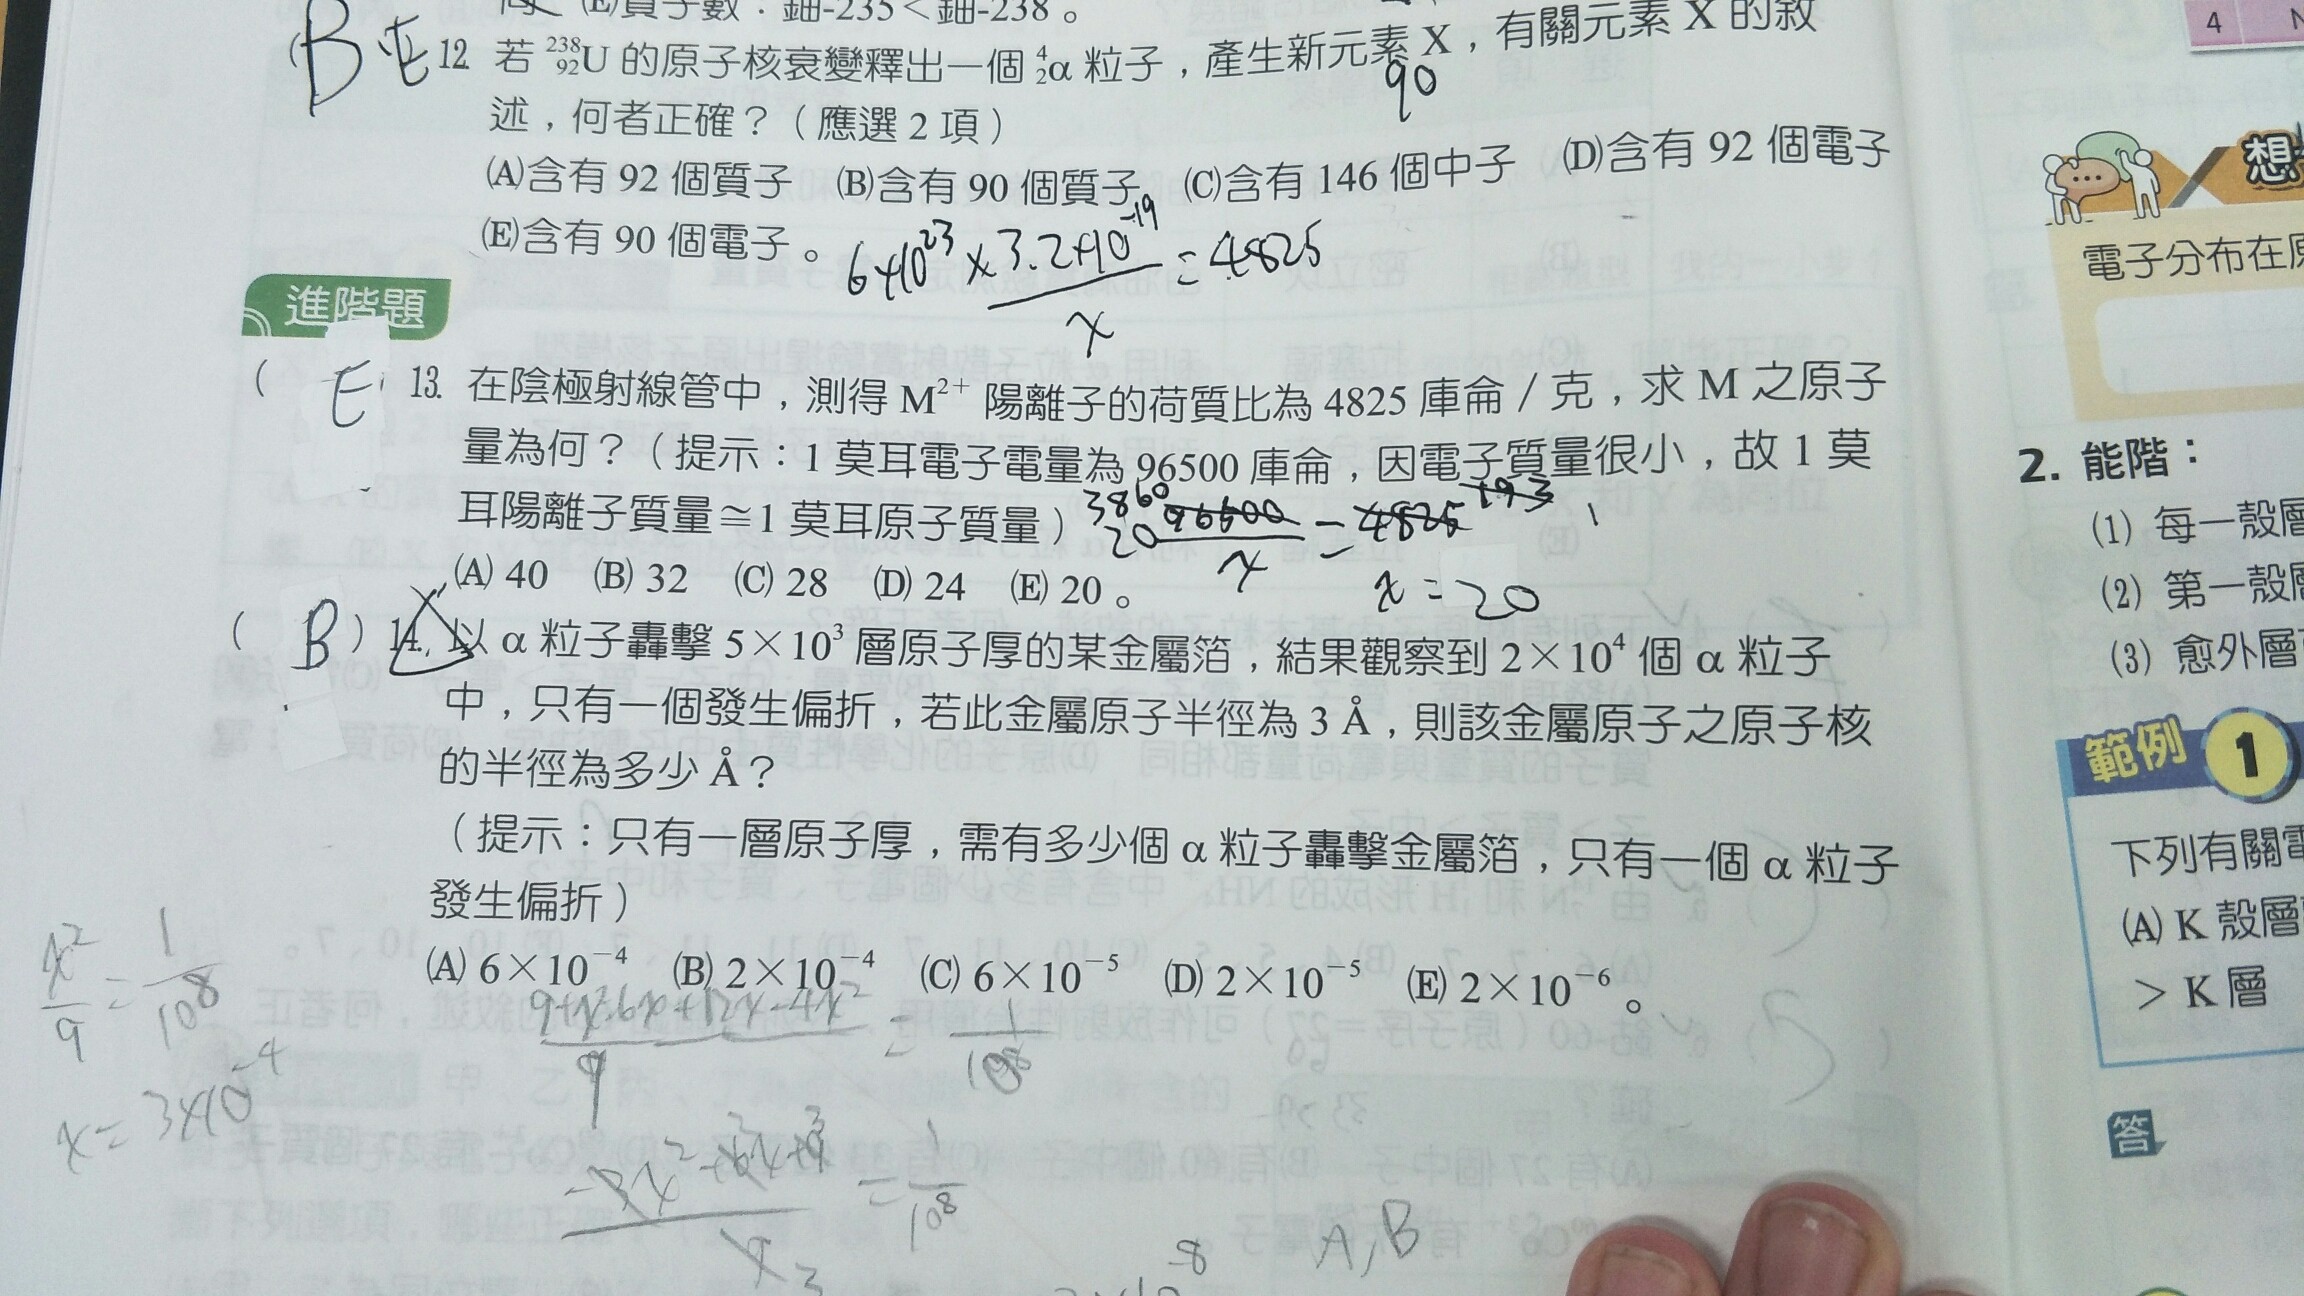 (E)質子數：鈾-235＜鈾-238。
B E 12. 若 ²³⁸₉₂U 的原子核衰變釋出一個 ⁴₂α 粒子，產生新元素 X，有關元素 X 的敘
90
述，何者正確？（應選 2 項）
(A)含有 92 個質子 (B)含有 90 個質子 (C)含有 146 個中子 (D)含有 92 個電子
(E)含有 90 個電子。
6×10²³ × 3.2×10⁻¹⁹ / x = 4825
進階題
( E 13. 在陰極射線管中，測得 M²⁺ 陽離子的荷質比為 4825 庫侖／克，求 M 之原子
量為何？（提示：1 莫耳電子電量為 96500 庫侖，因電子質量很小，故 1 莫
耳陽離子質量≅1 莫耳原子質量）
3860 20 96500 / x = 4825 193
x = 20
(A) 40 (B) 32 (C) 28 (D) 24 (E) 20。
( B ) 14. 以 α 粒子轟擊 5×10³ 層原子厚的某金屬箔，結果觀察到 2×10⁴ 個 α 粒子
中，只有一個發生偏折，若此金屬原子半徑為 3 Å，則該金屬原子之原子核
的半徑為多少 Å？
（提示：只有一層原子厚，需有多少個 α 粒子轟擊金屬箔，只有一個 α 粒子
發生偏折）
(A) 6×10⁻⁴ (B) 2×10⁻⁴ (C) 6×10⁻⁵ (D) 2×10⁻⁵ (E) 2×10⁻⁶。
x² / 9 = 1 / 10⁸
x = 3×10⁻⁴
9 = 1 / 10⁸
= 1 / 10⁸
A, B
4
想
電子分布在原
2. 能階：
(1) 每一殼層
(2) 第一殼層
(3) 愈外層
範例 1
下列有關電
(A) K 殼層
> K 層
答